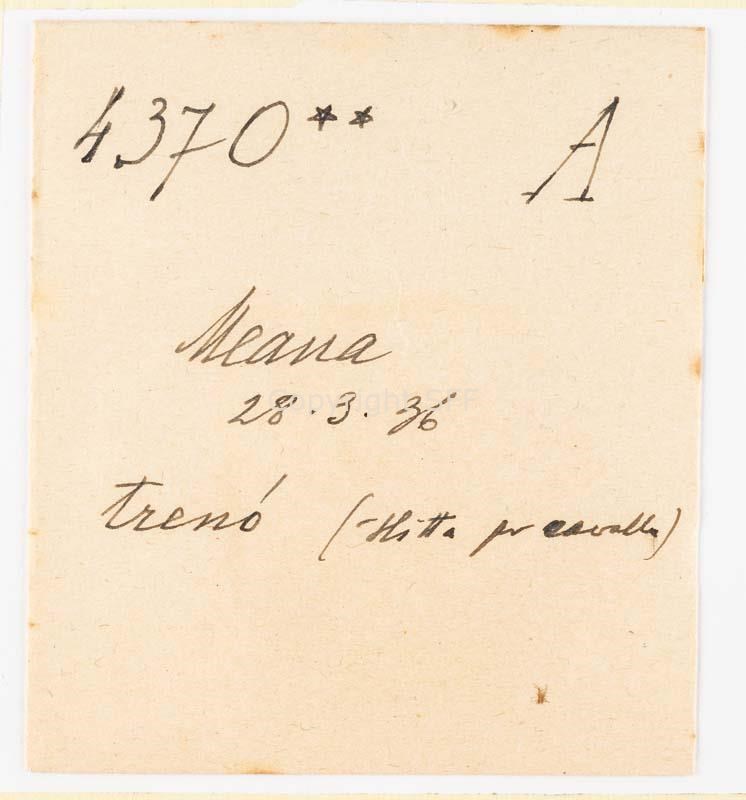 4370** A
Meana
28.3.36
trenó (slitta pr cavallo)
Copyright SFF